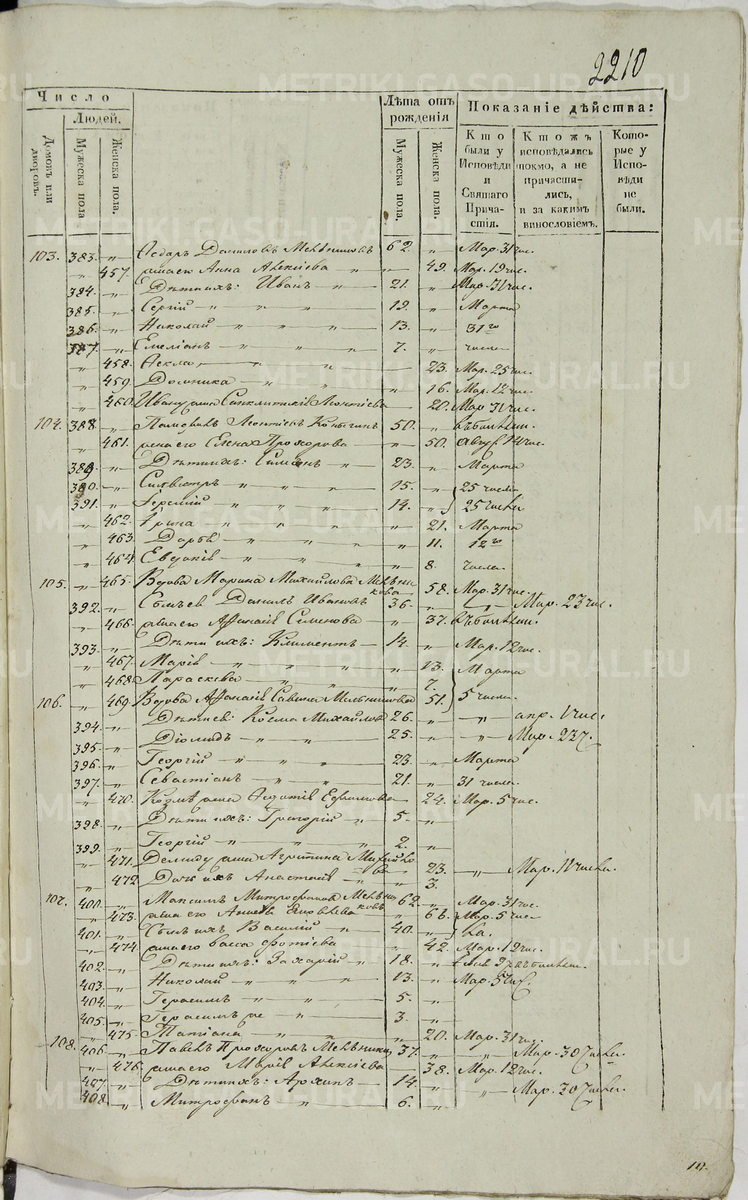 2210
Число
Людей.
Домовъ или дворовъ.
Мужеска пола
Женска пола.
Лѣта отъ рожденія
Мужеска пола.
Женска пола.
Показаніе дѣйства:
Кто были у Исповѣди и Святаго Причастія.
Кто жъ исповѣдались токмо, а не причастились, и за какимъ винословіемъ.
Которые у Исповѣди не были.
103. 383. „ Ѳедоръ Даниловъ Мельниковъ 62. „ Мар. 31 чис.
„ 457. жена его Анна Алексіева „ 49. Мар. 19 чис.
384. „ Дѣти ихъ: Иванъ „ 21. „ Мар. 31 чис.
385. „ Сергій „ „ „ 19. „ Марта
386. „ Николай „ „ „ 13. „ 31го
387. „ Емеліанъ „ „ „ 7. „ числа
„ 458. Ѳекла „ „ „ 23. Мар. 25 чис.
„ 459. Домника „ „ „ 16. Мар. 12 чис.
„ 460. Ивану жена Синклитикія Леонтіева 20. Мар. 31 чис.
104. 388. „ Леонтіевъ 50. „
„ 461. жена его Елена Прохорова „ 50. Август 14 чис.
389. „ Дѣти ихъ: Симеонъ „ 23. „ Марта
390. „ Силвестръ „ „ „ 15. „ 25 числа
391. „ Іеремій „ „ „ 14. „ 25 числа
„ 462. Ирина „ „ „ „ 21. Марта
„ 463. Дарья „ „ „ „ 11. 12го
„ 464. Евдокія „ „ „ „ 8. числа.
105. „ 465. Вдова Марина Михайлова Мельникова 58. Мар. 31 чис.
392. „ Сынъ ея Данилъ Ивановъ 36. „ „ Мар. 23 чис.
„ 466. жена его Афанасія Семенова „ 37.
393. „ Дѣти ихъ: Климентъ 14. „ Мар. 12 чис.
„ 467. Марія „ „ „ „ 13. Марта
„ 468. Параскева „ „ „ 7. 5 числа.
106. „ 469. Вдова Афанасія Савина Мельникова 51.
394. „ Дѣти ея: Козма Михайловъ 26. „ „ апр. 1 чис.
395. „ Діомидъ „ „ 25. „ „ Мар. 23 ч.
396. „ Георгій „ „ „ 23. „ Марта
397. „ Севастіанъ „ „ 21. „ 31 числа
„ 470. Козмѣ жена Ефимова 24. Мар. 5 чис.
398. „ Дѣти ихъ: Григорій „ 5. „
399. „ Георгій „ „ „ 2. „
„ 471. Демиду жена Агриппина 23. „ Мар. 11 числа.
„ 472. Дочь ихъ Анастасія „ 3.
107. 400. „ Максимъ Митрофановъ Мельниковъ 62. „ Мар. 31 чис.
„ 473. жена его Яковлева „ 66. Мар. 5 числа.
401. „ Сынъ ихъ Василій „ 40. „
„ 474. жена его Васса Фотіева 42. Мар. 12 чис.
402. „ Дѣти ихъ: Захарій „ 18. „
403. „ Николай „ „ „ 13. „ Мар. 5 чис.
404. „ Герасимъ „ „ „ 5. „
405. „ Герасимъ же „ „ 3. „
„ 475. Татіана „ „ „ 20. Мар. 31 чис.
108. 406. „ Павелъ Прохоровъ Мельниковъ 37. „ „ Мар. 30 числа.
„ 476. жена его Марія Алексіева „ 38. Мар. 12 чис.
407. „ Дѣти ихъ: „ 14. „ „ Мар. 30 числа.
408. „ Митрофанъ „ „ 6. „